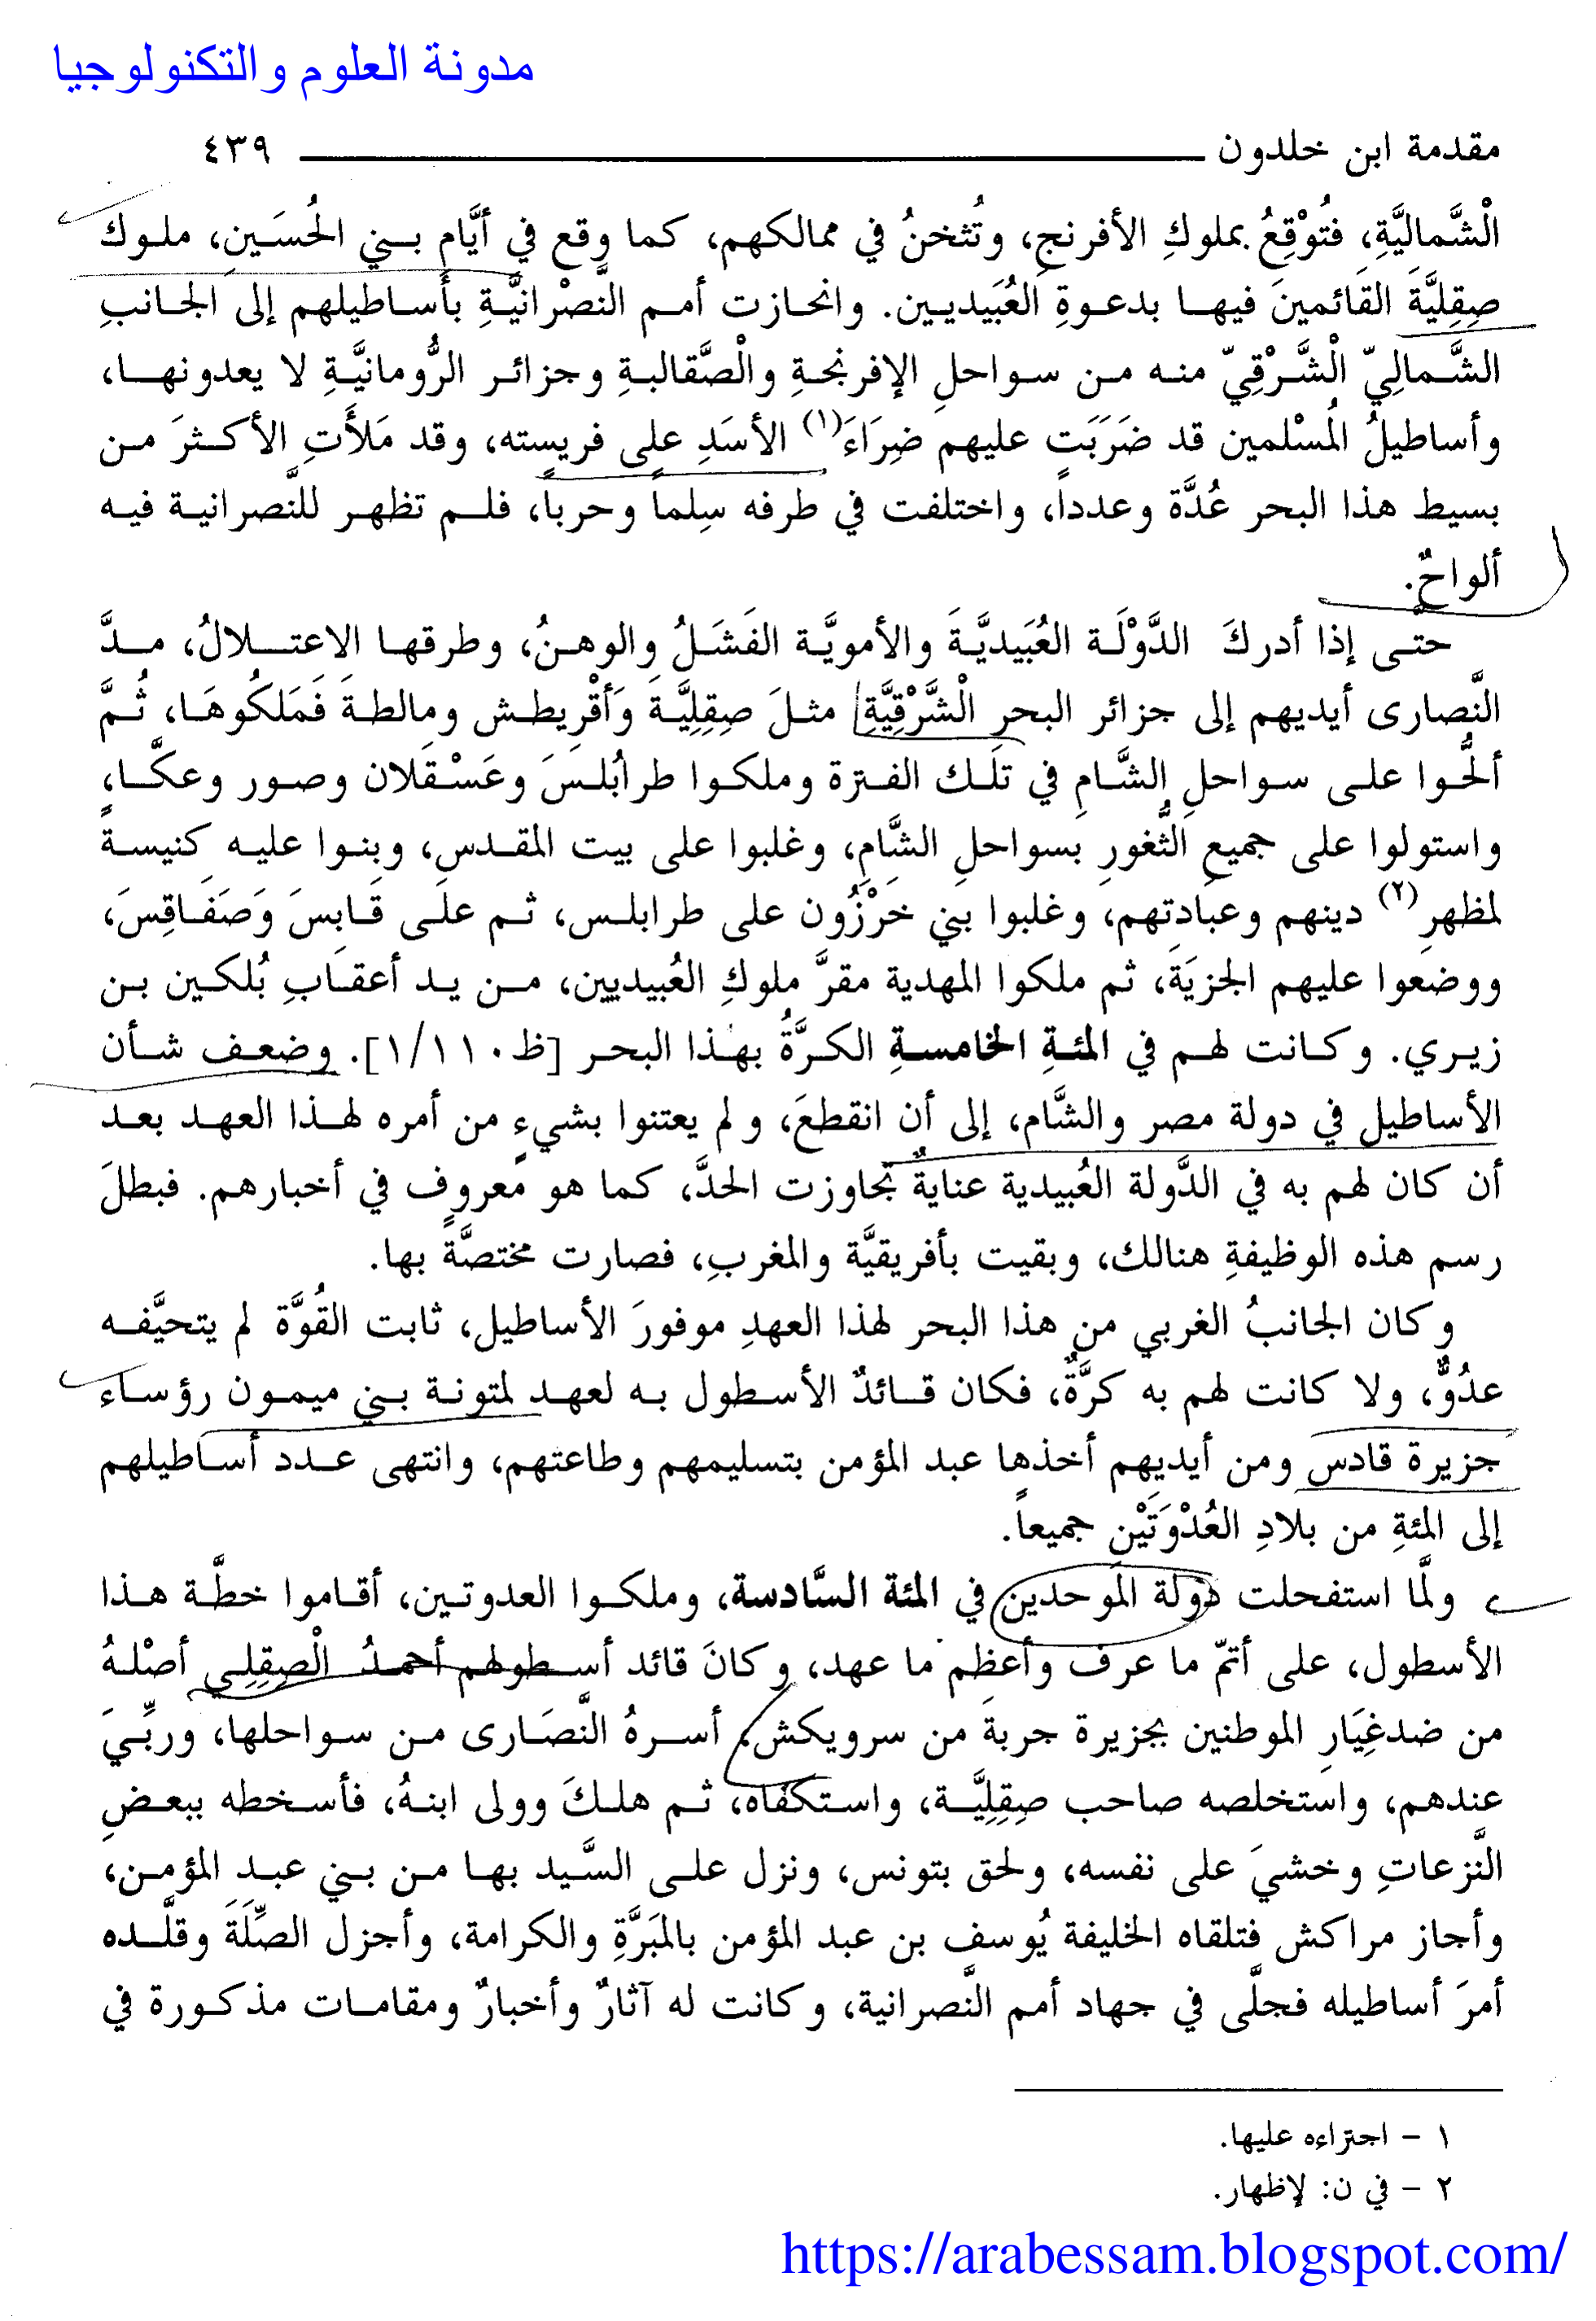 مدونة العلوم والتكنولوجيا
مقدمة ابن خلدون ٤٣٩
الْشَّماليَّةِ، فتُوْقِعُ بملوكِ الأفرنجِ، وتُثخنُ في ممالكهم، كما وقع في أيَّام بـني الحُسَينِ، ملوك
صِقِليَّةَ القَائمينَ فيها بدعوةِ العُبَيديين. وانحازت أمم النَّصْرانيَّةِ بأَساطيلهم إلى الجانبِ
الشَّماليّ الْشَّرْقِيّ منه من سواحلِ الإفرنجةِ والْصَّقالبةِ وجزائر الرُّومانيَّةِ لا يعدونها،
وأساطيلُ المُسْلمين قد ضَرَبَت عليهم ضِرَاءَ(١) الأسَدِ على فريسته، وقد مَلأَتِ الأكثرَ من
بسيط هذا البحر عُدَّة وعدداً، واختلفت في طرفه سِلماً وحرباً، فلم تظهر للنَّصرانية فيه
ألواحٌ.
حتَّى إذا أدركَ الدَّوْلَة العُبَيديَّةَ والأمويَّة الفَشَلُ والوهنُ، وطرقها الاعتلالُ، مدَّ
النَّصارى أيديهم إلى جزائر البحر الْشَّرْقِيَّةِ مثلَ صِقِلِيَّةَ وَأَقْرِيطش ومالطةَ فَمَلكُوهَا، ثُمَّ
ألحُّوا على سواحلِ الشَّامِ في تلك الفترة وملكوا طرابُلسَ وعَسْقَلان وصور وعكَّا،
واستولوا على جميعِ الثُّغورِ بسواحلِ الشَّامِ، وغلبوا على بيت المقدس، وبنوا عليه كنيسةً
لمظهرِ(٢) دينهم وعبادتهم، وغلبوا بني خَرْزُون على طرابلس، ثم على قَابِسَ وَصَفَاقِسَ،
ووضعوا عليهم الجزيَةَ، ثم ملكوا المهدية مقرَّ ملوكِ العُبيديين، من يد أعقابِ بُلكين بن
زيري. وكانت لهم في المئةِ الخامسةِ الكرَّةُ بهذا البحر [ظ١/١١٠]. وضعف شأن
الأساطيل في دولة مصر والشَّام، إلى أن انقطعَ، ولم يعتنوا بشيءٍ من أمره لهذا العهد بعد
أن كان لهم به في الدَّولة العُبيدية عنايةٌ تجاوزت الحدَّ، كما هو معروفٍ في أخبارهم. فبطلَ
رسم هذه الوظيفةِ هنالك، وبقيت بأفريقيَّة والمغربِ، فصارت مختصَّةً بها.
وكان الجانبُ الغربي من هذا البحر لهذا العهدِ موفورَ الأساطيل، ثابت القُوَّة لم يتحيَّفه
عدُوٌّ، ولا كانت لهم به كرَّةٌ، فكان قائدٌ الأسطول به لعهد لمتونة بني ميمون رؤساء
جزيرة قادس ومن أيديهم أخذها عبد المؤمن بتسليمهم وطاعتهم، وانتهى عدد أساطيلهم
إلى المئةِ من بلادِ العُدْوَتَيْن جميعاً.
ولمَّا استفحلت دولة المَوحدين في المئة السَّادسة، وملكوا العدوتين، أقاموا خطَّة هذا
الأسطول، على أتمّ ما عرف وأعظم ما عهد، وكانَ قائد أسطولهم أحمدُ الْصِقِلِي أصْلهُ
من ضدغِيَارِ الموطنين بجزيرة جربةَ من سرويكش، أسرهُ النَّصَارى من سواحلها، وربِّيَ
عندهم، واستخلصه صاحب صِقِلِيَّة، واستكفاه، ثم هلكَ وولى ابنهُ، فأسخطه ببعضِ
النَّزعاتِ وخشيَ على نفسه، ولحق بتونس، ونزل على السَّيد بها من بني عبد المؤمن،
وأجاز مراكش فتلقاه الخليفة يُوسف بن عبد المؤمن بالمَبَرَّةِ والكرامة، وأجزل الصِّلَةَ وقلَّده
أمرَ أساطيله فجلَّى في جهاد أمم النَّصرانية، وكانت له آثارٌ وأخبارٌ ومقامات مذكورة في
١ – اجتراءه عليها.
٢ – في ن: لإظهار.
https://arabessam.blogspot.com/